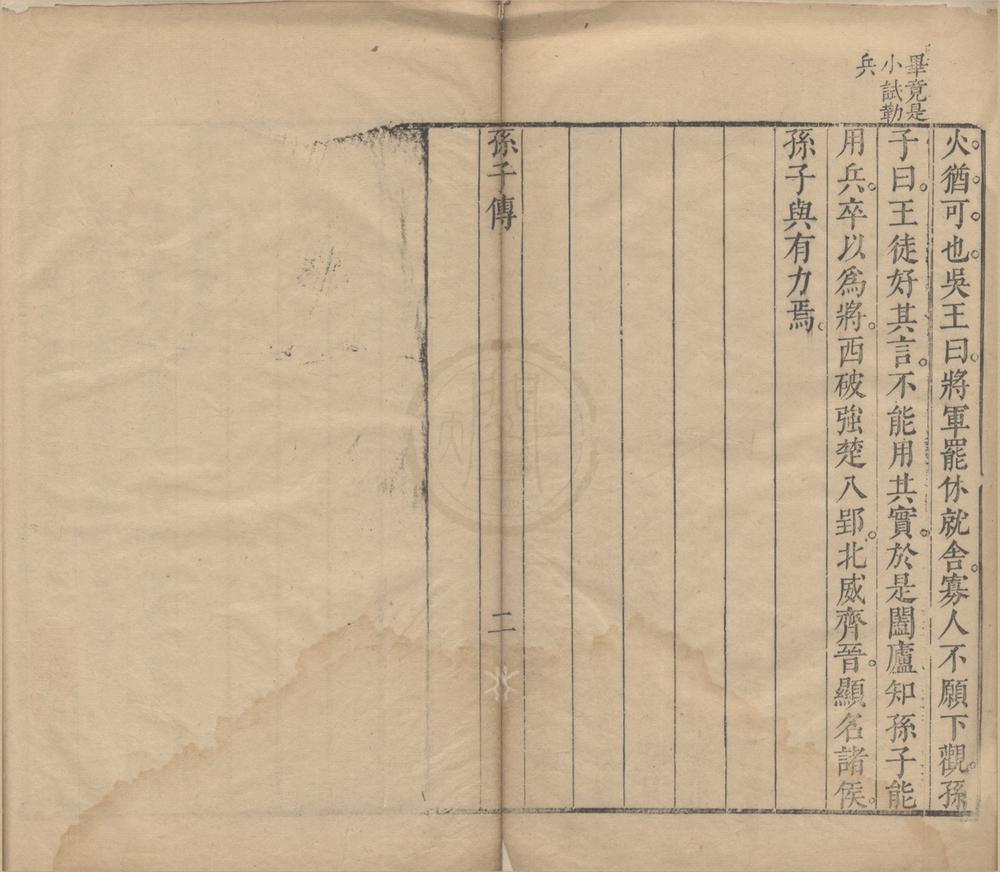 畢竟是
小試勒
兵
火。猶。可。也。吳王曰。將軍罷休就舍。寡人不願下觀。孫
子曰。王徒好其言。不能用其實。於是闔廬知孫子能
用兵。卒以爲將。西破強楚入郢。北威齊晉。顯名諸侯。
孫子與有力焉。
孫子傳
二